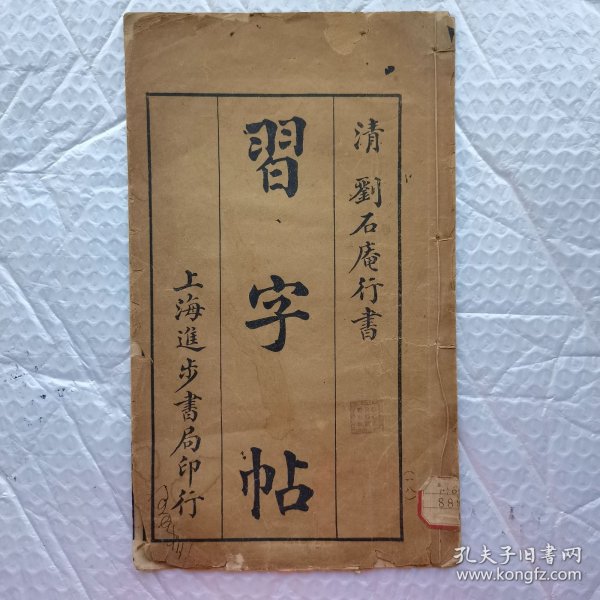 清 劉石庵行書
習字帖
上海進步書局印行
(一八)
孔夫子旧书网
www.kongfz.com